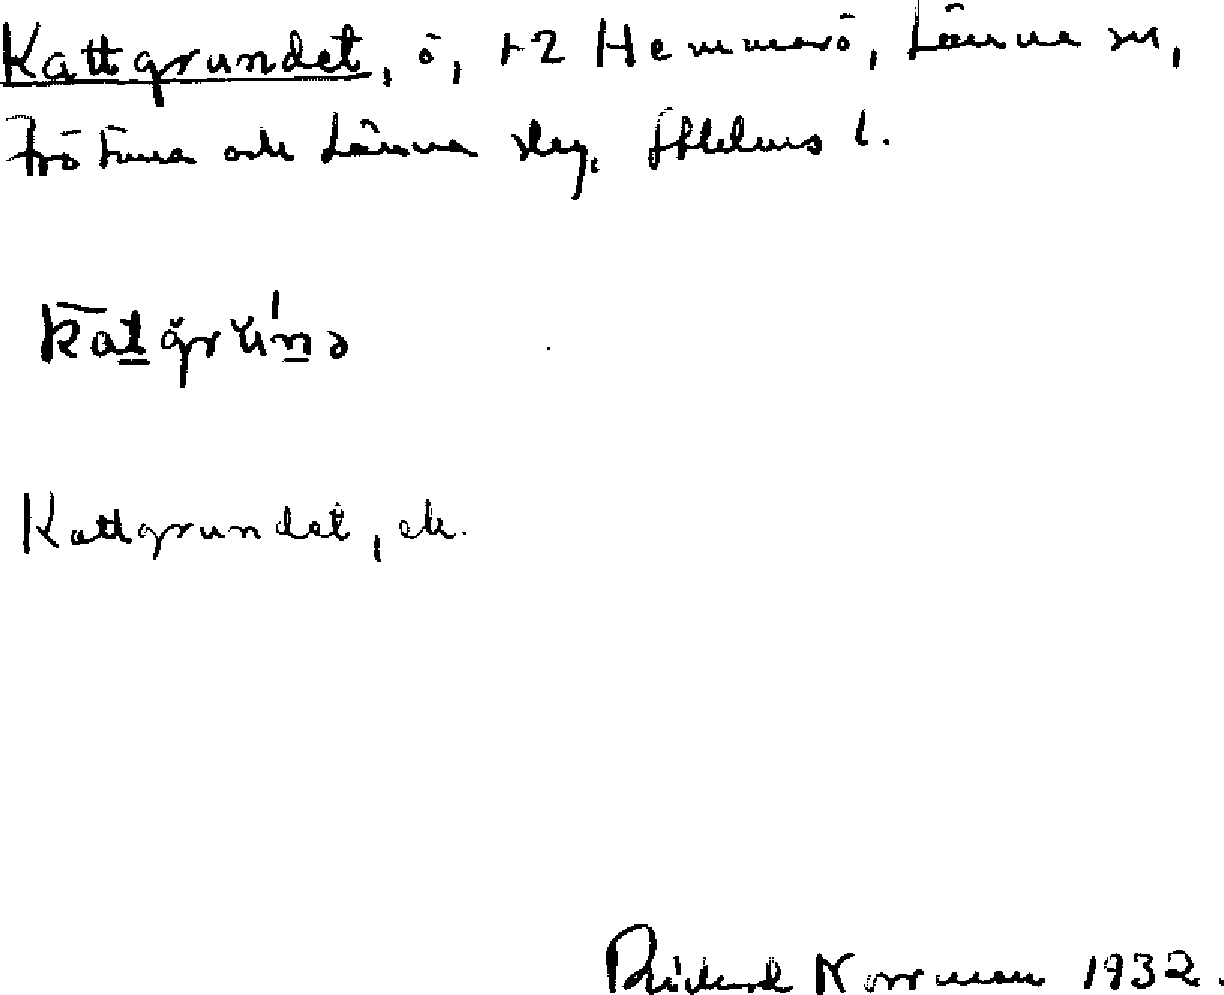 Kattgrundet, ö, +2 Hemmarö, Länna sn,
Frötuna och Länna skg, Sthlms l.
Katgrúnə
Kattgrundet, ek.
Rickard Norrman 1932.